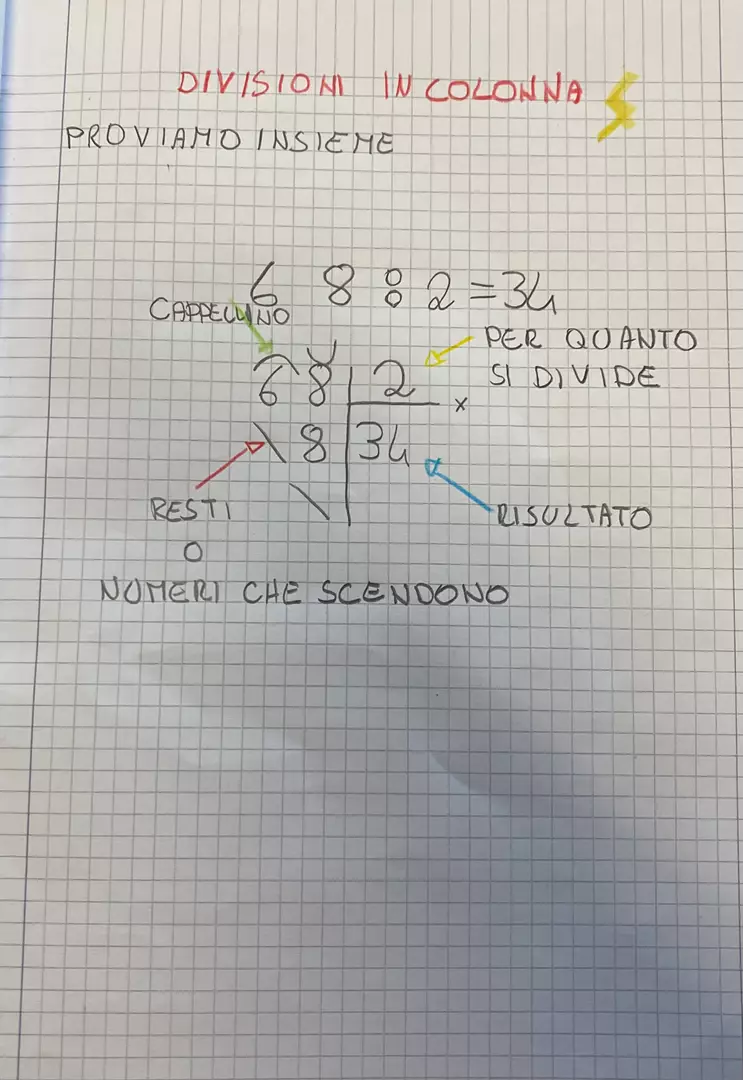 DIVISIONI IN COLONNA
PROVIAMO INSIEME
6 8 : 2 = 34
CAPPELLINO
PER QUANTO
SI DIVIDE
68 2
x
\ 8 34
\
RESTI
O
NUMERI CHE SCENDONO
RISULTATO